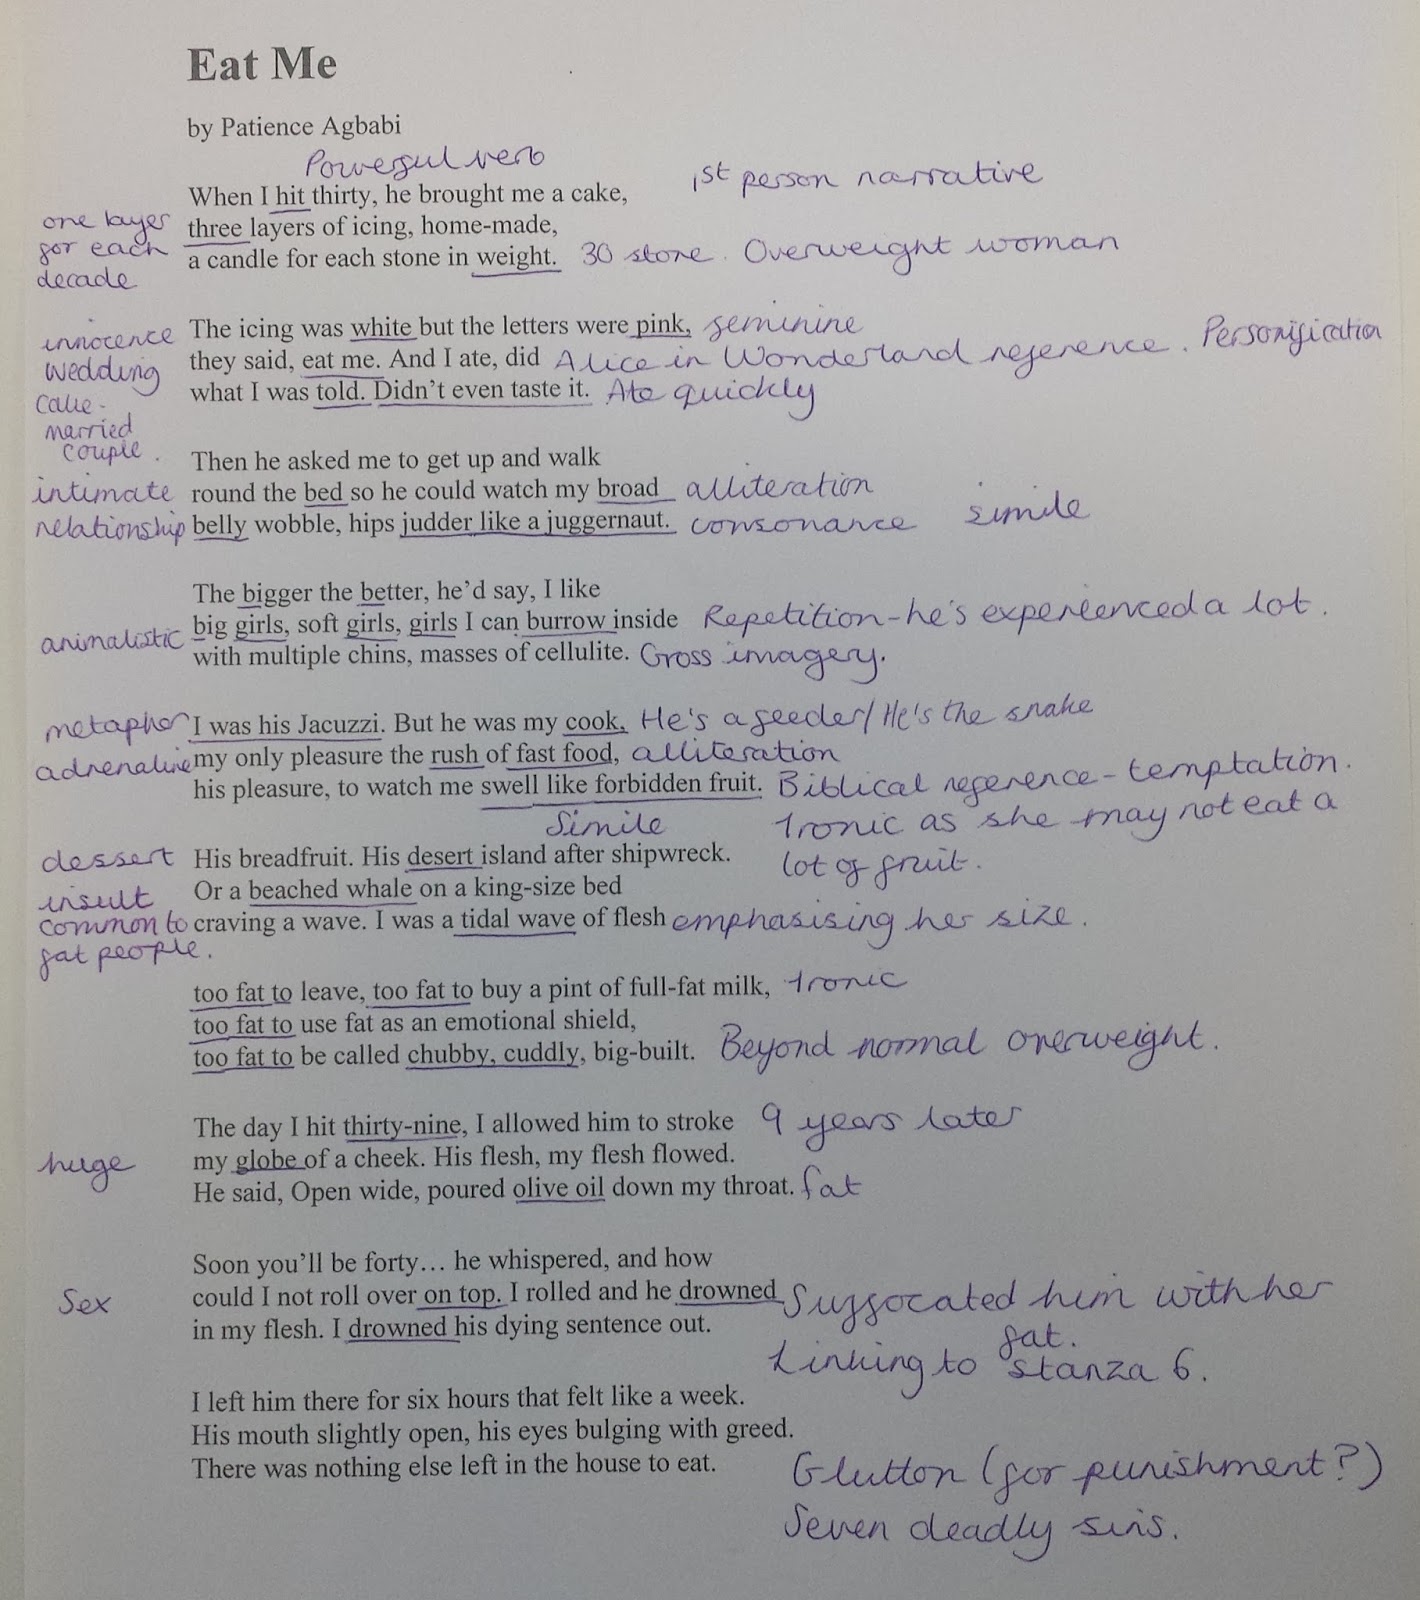 Eat Me
by Patience Agbabi
Powerful verb
1st person narrative
When I hit thirty, he brought me a cake,
one layer
for each
decade
three layers of icing, home-made,
a candle for each stone in weight. 30 stone. Overweight woman
innocence
wedding
cake-
married
couple.
The icing was white but the letters were pink, feminine
they said, eat me. And I ate, did Alice in Wonderland reference. Personification
what I was told. Didn't even taste it. Ate quickly
Then he asked me to get up and walk
intimate
relationship
round the bed so he could watch my broad alliteration
belly wobble, hips judder like a juggernaut. consonance simile
The bigger the better, he'd say, I like
animalistic
big girls, soft girls, girls I can burrow inside Repetition-he's experienced a lot.
with multiple chins, masses of cellulite. Gross imagery.
metaphor I was his Jacuzzi. But he was my cook, He's a feeder/He's the snake
adrenaline my only pleasure the rush of fast food, alliteration
his pleasure, to watch me swell like forbidden fruit. Biblical reference-temptation.
Simile
Ironic as she may not eat a
lot of fruit.
dessert His breadfruit. His desert island after shipwreck.
insult
common to
fat people.
Or a beached whale on a king-size bed
craving a wave. I was a tidal wave of flesh emphasising her size.
too fat to leave, too fat to buy a pint of full-fat milk, Ironic
too fat to use fat as an emotional shield,
too fat to be called chubby, cuddly, big-built. Beyond normal overweight.
The day I hit thirty-nine, I allowed him to stroke 9 years later
huge my globe of a cheek. His flesh, my flesh flowed.
He said, Open wide, poured olive oil down my throat. fat
Soon you'll be forty… he whispered, and how
Sex could I not roll over on top. I rolled and he drowned Suffocated him with her
fat.
in my flesh. I drowned his dying sentence out.
Linking to stanza 6.
I left him there for six hours that felt like a week.
His mouth slightly open, his eyes bulging with greed.
There was nothing else left in the house to eat.
Glutton (for punishment?)
Seven deadly sins.